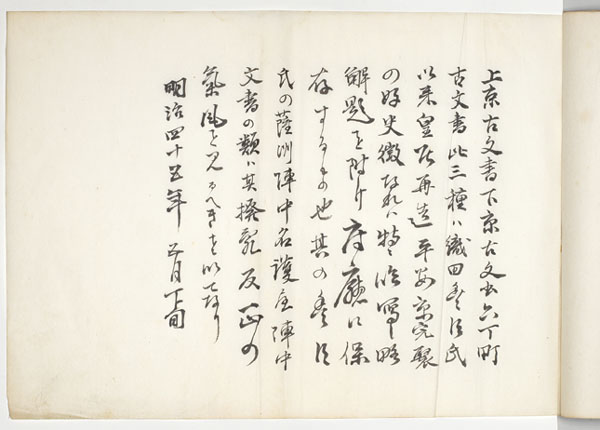 上京古文書下京古文書六丁町
古文書此三種ハ織田豊臣氏
以来皇居再造平安京完製
の好史徴なれハ特ニ臨写し略
解題を附け府廳に保
存するもの也其の豊臣
氏の薩州陣中名護屋陣中
文書の類ハ其撥乱反正の
氣風を見るへきを以てなり
明治四十五年五月下旬